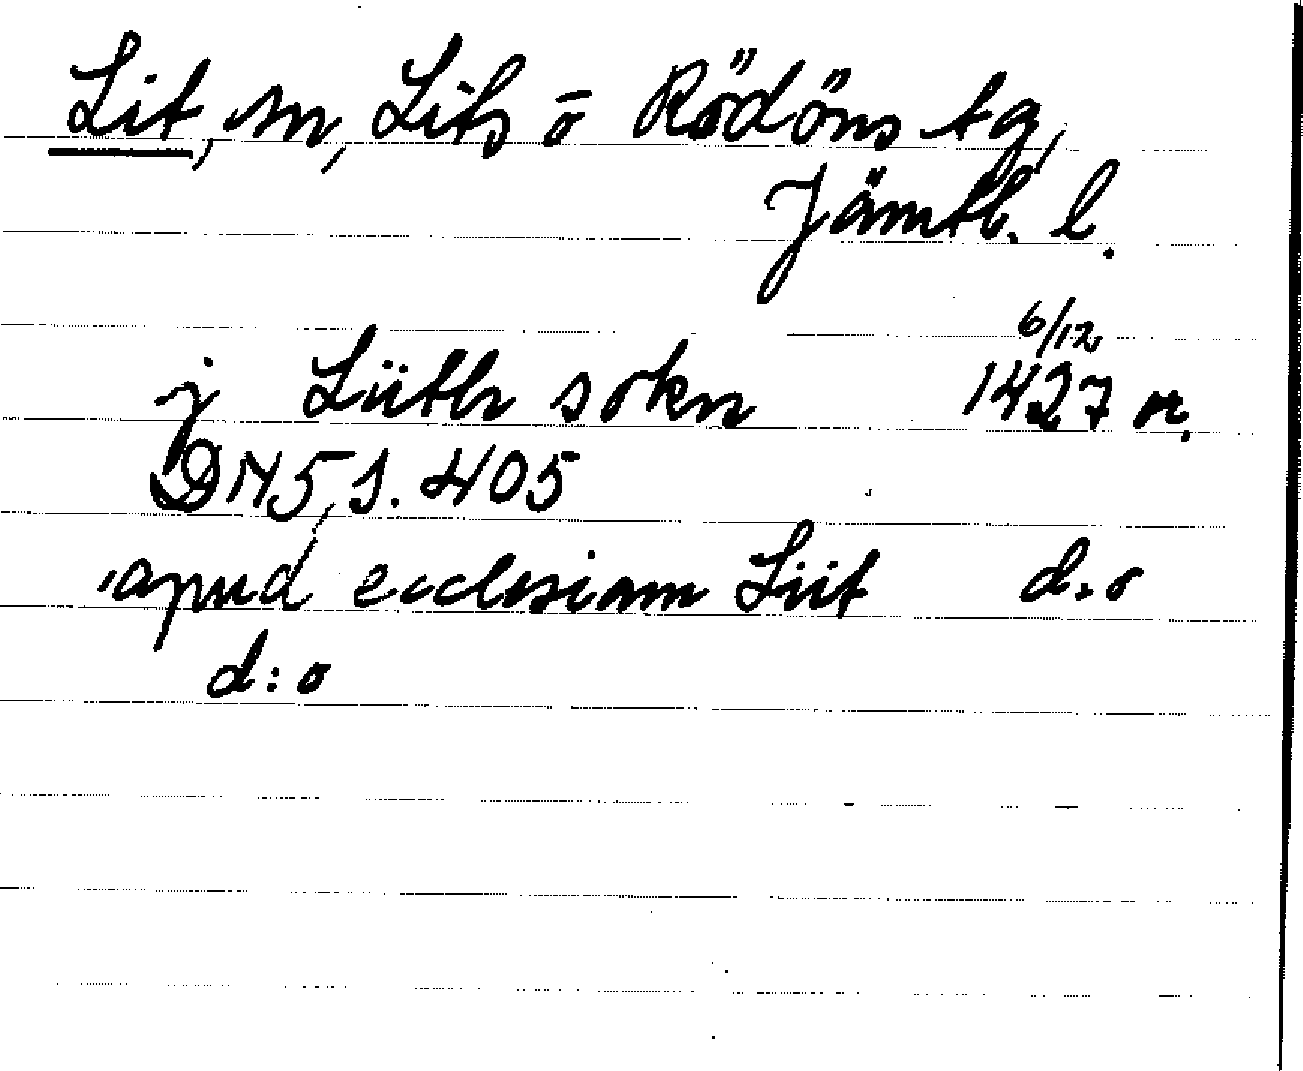 Lit, sn, Lits o Rödöns tg,
Jämtl. l.
6/12
j Liithr sokn 1427 or.
DN 5, s. 405
apud ecclesiam Liit d:o
d:o